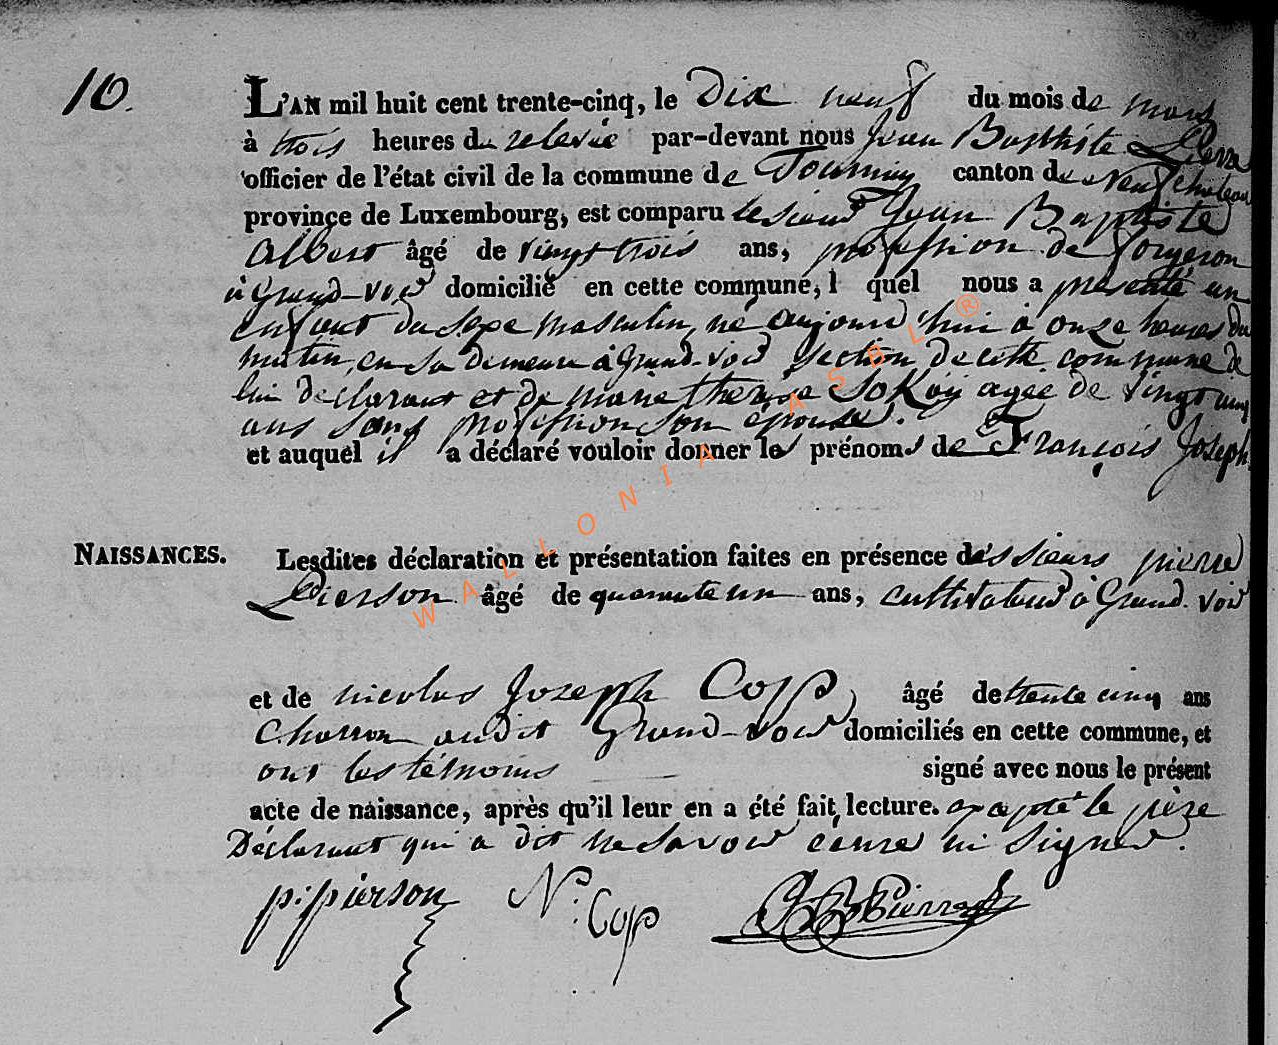 10.
L'AN mil huit cent trente-cinq, le Dix neuf du mois de mars
à trois heures du relevée par-devant nous Jean Baptiste Pierre
officier de l'état civil de la commune de Tournay canton de neufchateau
province de Luxembourg, est comparu le sieur Jean Baptiste
Albert âgé de vingt trois ans, profession de forgeron
à Grand-voir domicilié en cette commune, l quel nous a presenté un
enfant du sexe masculin, né aujourd'hui à onze heures du
matin, en sa demeure à Grand-voir section de cette commune de
lui declarant et de marie therèse SoKay agée de vingt cinq
ans sans profession son épouse.
et auquel il a déclaré vouloir donner les prénoms de François Joseph
NAISSANCES.
Lesdites déclaration et présentation faites en présence des sieurs pierre
Pierson âgé de quarante un ans, cultivateur à Grand-voir
et de nicolas Joseph Cop âgé de trente cinq ans
Charron audit Grand-voir domiciliés en cette commune, et
ont les témoins signé avec nous le présent
acte de naissance, après qu'il leur en a été fait lecture. excepté le père
Déclarant qui a dit ne savoir écrire ni signer.
p: pierson N: Cop JB Pierre
WALLONIA ASBL ®